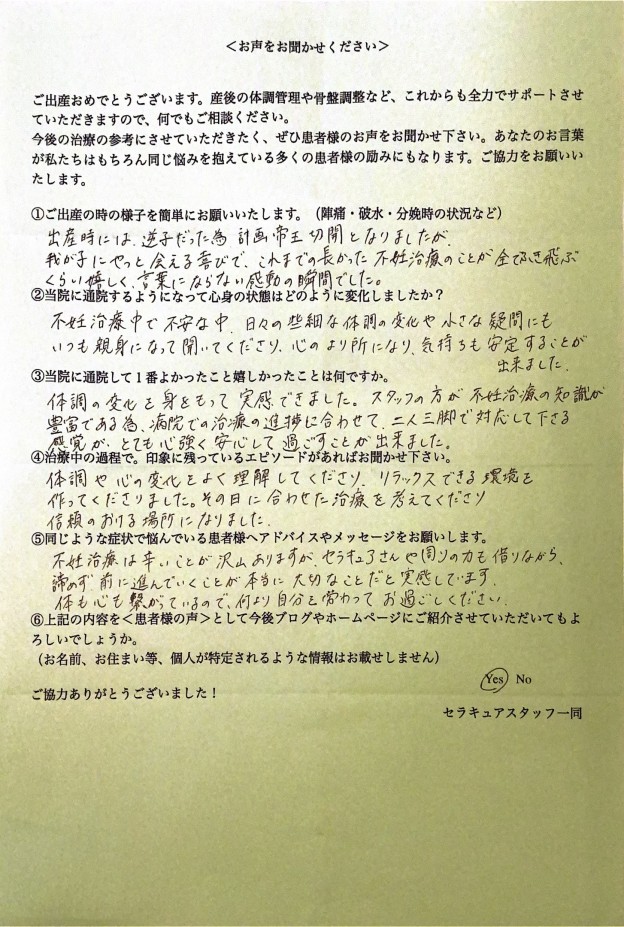 ＜お声をお聞かせください＞
ご出産おめでとうございます。産後の体調管理や骨盤調整など、これからも全力でサポートさせ
ていただきますので、何でもご相談ください。
今後の治療の参考にさせていただきたく、ぜひ患者様のお声をお聞かせ下さい。あなたのお言葉
が私たちはもちろん同じ悩みを抱えている多くの患者様の励みにもなります。ご協力をお願いい
たします。
①ご出産の時の様子を簡単にお願いいたします。（陣痛・破水・分娩時の状況など）
出産時には、逆子だった為 計画帝王切開となりましたが、
我が子にやっと会える喜びで、これまでの長かった不妊治療のことが全てふき飛ぶ
くらい嬉しく、言葉にならない感動の瞬間でした。
②当院に通院するようになって心身の状態はどのように変化しましたか？
不妊治療中で不安な中、日々の些細な体調の変化や小さな疑問にも
いつも親身になって聞いてくださり、心のより所になり、気持ちも安定することが
出来ました。
③当院に通院して１番よかったこと嬉しかったことは何ですか。
体調の変化を身をもって実感できました。スタッフの方が不妊治療の知識が
豊富である為、病院での治療の進捗に合わせて、二人三脚で対応して下さる
感覚が、とても心強く安心して過ごすことが出来ました。
④治療中の過程で。印象に残っているエピソードがあればお聞かせ下さい。
体調や心の変化をよく理解してくださり、リラックスできる環境を
作ってくださりました。その日に合わせた治療を考えてくださり
信頼のおける場所になりました。
⑤同じような症状で悩んでいる患者様へアドバイスやメッセージをお願いします。
不妊治療は辛いことが沢山ありますが、セラキュアさんや周りの力も借りながら、
諦めず前に進んでいくことが本当に大切なことだと実感しています。
体も心も繋がっているので、何より自分を労わってお過ごしください。
⑥上記の内容を＜患者様の声＞として今後ブログやホームページにご紹介させていただいてもよ
ろしいでしょうか。
（お名前、お住まい等、個人が特定されるような情報はお載せしません）
Yes No
ご協力ありがとうございました！
セラキュアスタッフ一同